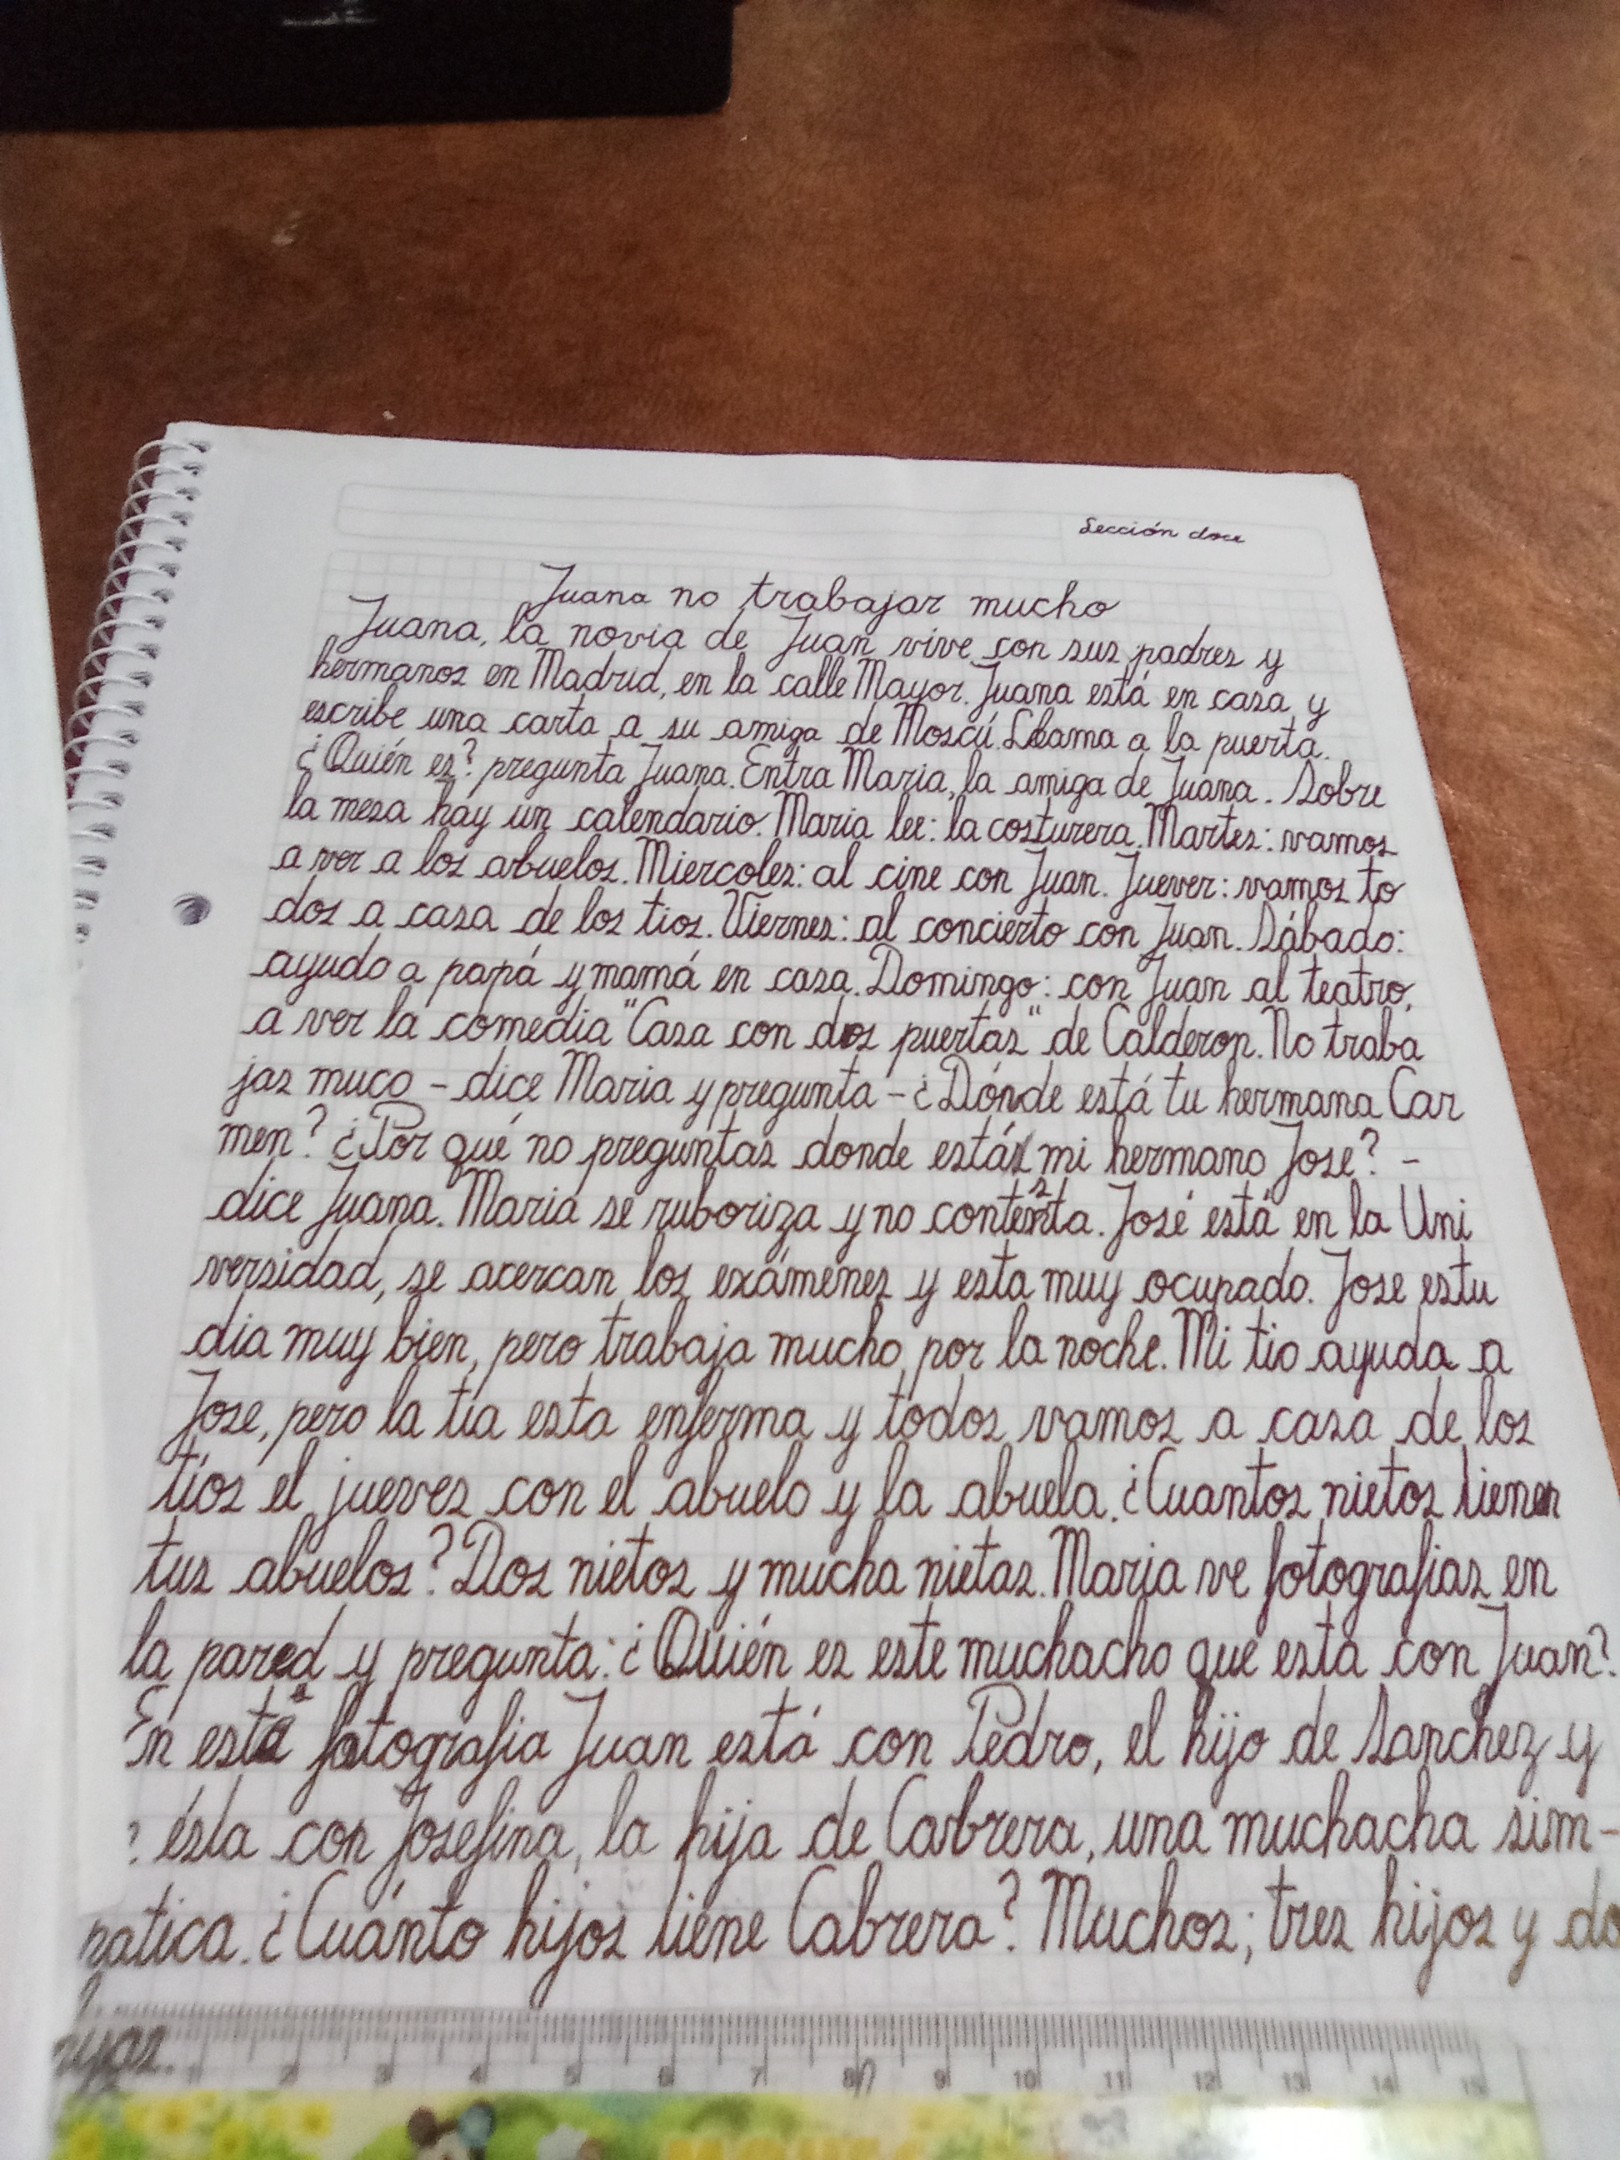 Sección doce
Juana no trabajar mucho
Juana, la novia de Juan vive con sus padres y
hermanos en Madrid, en la calle Mayor. Juana está en casa y
escribe una carta a su amiga de Moscú. Llama a la puerta.
¿Quién es? pregunta Juana. Entra Maria, la amiga de Juana. Sobre
la mesa hay un calendario. Maria lee: la costurera. Martes: vamos
a ver a los abuelos. Miercoles: al cine con Juan. Juever: vamos to
dos a casa de los tios. Viernes: al concierto con Juan. Sábado:
ayudo a papá y mamá en casa. Domingo: con Juan al teatro,
a ver la comedia "Casa con dos puertas" de Calderon. No traba
jas muco - dice Maria y pregunta - ¿Dónde está tu hermana Car
men? ¿Por qué no preguntas donde está mi hermano Jose? -
dice Juana. Maria se ruboriza y no contesta. José está en la Uni
versidad, se acercan los exámenes y esta muy ocupado. Jose estu
dia muy bien, pero trabaja mucho por la noche. Mi tio ayuda a
Jose, pero la tia esta enferma y todos vamos a casa de los
tíos el jueves con el abuelo y la abuela. ¿Cuantos nietos tienen
tus abuelos? Dos nietos y mucha nietas. Maria ve fotografias en
la pared y pregunta: ¿Quién es este muchacho que esta con Juan?
En esta fotografia Juan está con Pedro, el hijo de Sanchez y
ésta con Josefina, la hija de Cabrera, una muchacha sim-
patica. ¿Cuánto hijos tiene Cabrera? Muchos; tres hijos y do
1 2 3 4 5 6 7 8 9 10 11 12 13 14 15